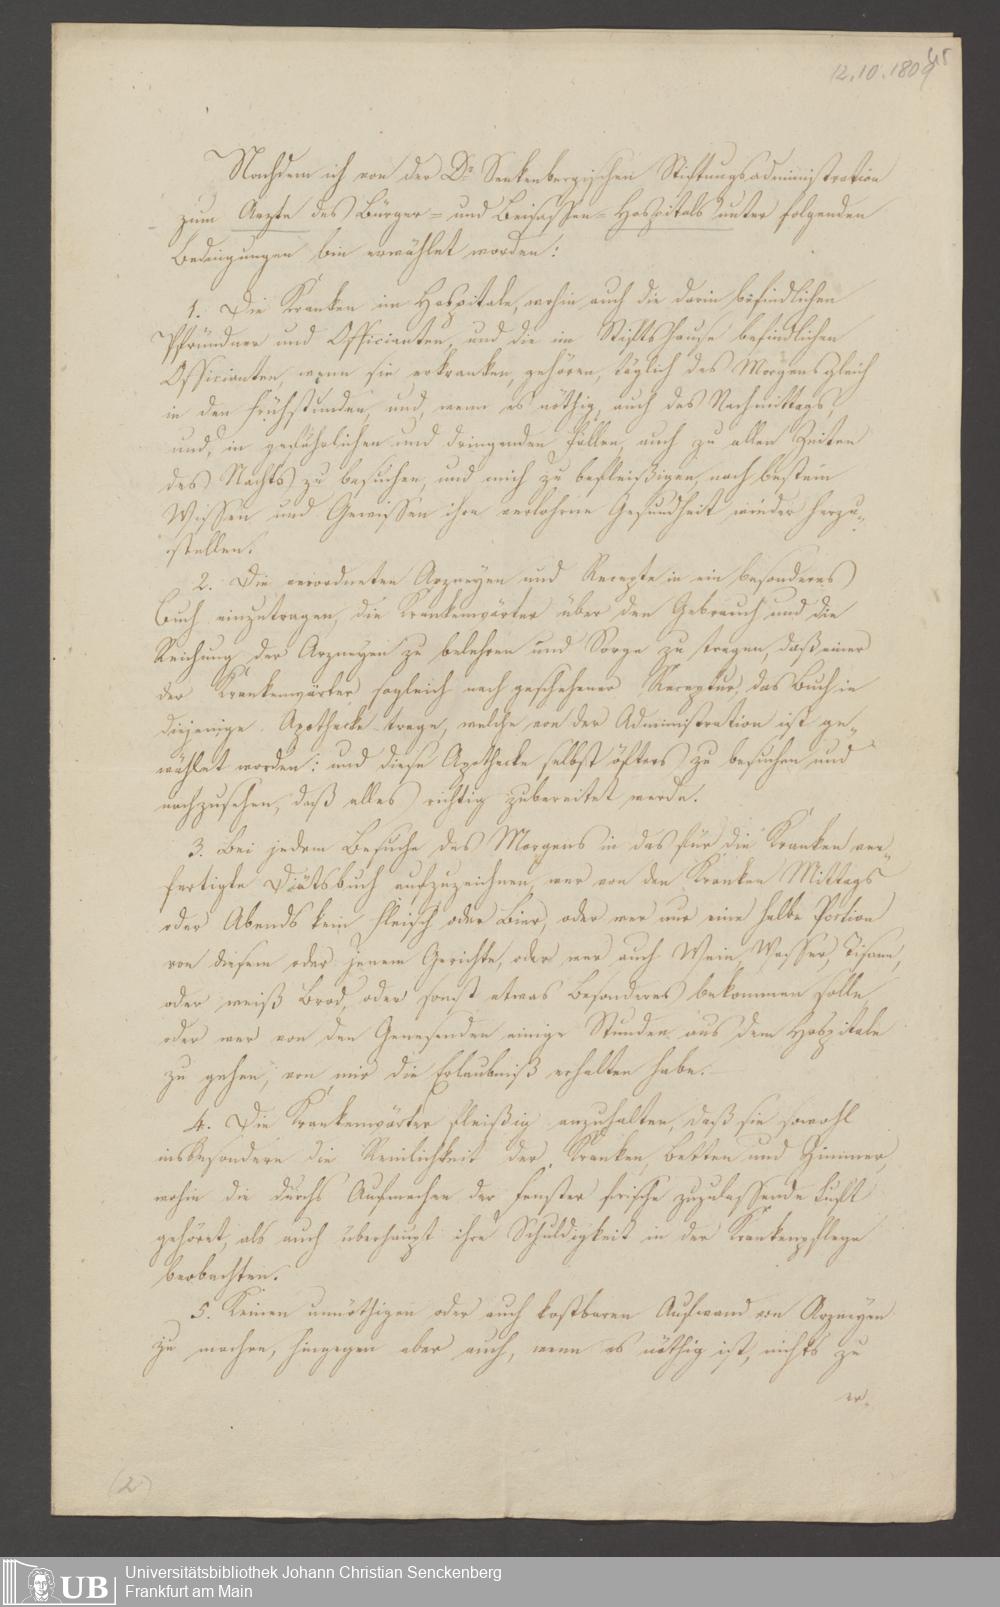 45
12.10.1809
Nachdem ich von der Dr. Senkenbergischen Stiftungsadministration
zum Arzte des Bürger= und Beisassen=Hospitals unter folgenden
Bedingungen bin erwählet worden:
1. Die Kranken im Hospitale, wohin auch die darin befindlichen
Pfründner und Officianten, und die im Stiftshause befindlichen
Officianten, wenn sie erkranken, gehören, täglich des Morgens gleich
in den Frühstunden, und, wenn es nöthig, auch des Nachmittags,
und, in gefährlichen und dringenden Fällen, auch zu allen Zeiten
des Nachts zu besuchen, und mich zu befleißigen, nach bestem
Wissen und Gewissen ihre verlohrne Gesundheit wieder herzu„
stellen.
2. Die verordneten Arzneyen und Recepte in ein besonderes
Buch einzutragen, die Krankenwärter über den Gebrauch und die
Reichung der Arzneyen zu belehren und Sorge zu tragen, daß einer
der Krankenwärter sogleich nach geschehener Receptur das Buch in
diejenige Apothecke trage, welche von der Administration ist ge„
wählet worden: und diese Apothecke selbst öfters zu besuchen und
nachzusehen, daß alles richtig zubereitet werde.
3. Bei jedem Besuche des Morgens in das für die Kranken ver„
fertigte Diätsbuch aufzuzeichnen, wer von den Kranken Mittags
oder Abends kein Fleisch oder Bier, oder wer nur eine halbe Portion
von diesem oder jenem Gerichte, oder wer auch Wein, Wasser, Tisane,
oder weiß Brod, oder sonst etwas Besonderes bekommen solle,
oder wer von den Genesenden einige Stunden aus dem Hospitale
zu gehen, von mir die Erlaubniß erhalten habe.
4. Die Krankenwärter fleißig anzuhalten, daß sie sowohl
insbesondere die Reinlichkeit der Kranken, Betten und Zimmer,
wohin die durchs Aufmachen der Fenster frische zuzulassende Luft
gehöret, als auch überhaupt ihre Schuldigkeit in der Krankenpflege
beobachten.
5. Keinen unnöthigen oder auch kostbaren Aufwand von Arzneyen
zu machen, hingegen aber auch, wenn es nöthig ist, nichts zu
er„
(2)
UB
Universitätsbibliothek Johann Christian Senckenberg
Frankfurt am Main